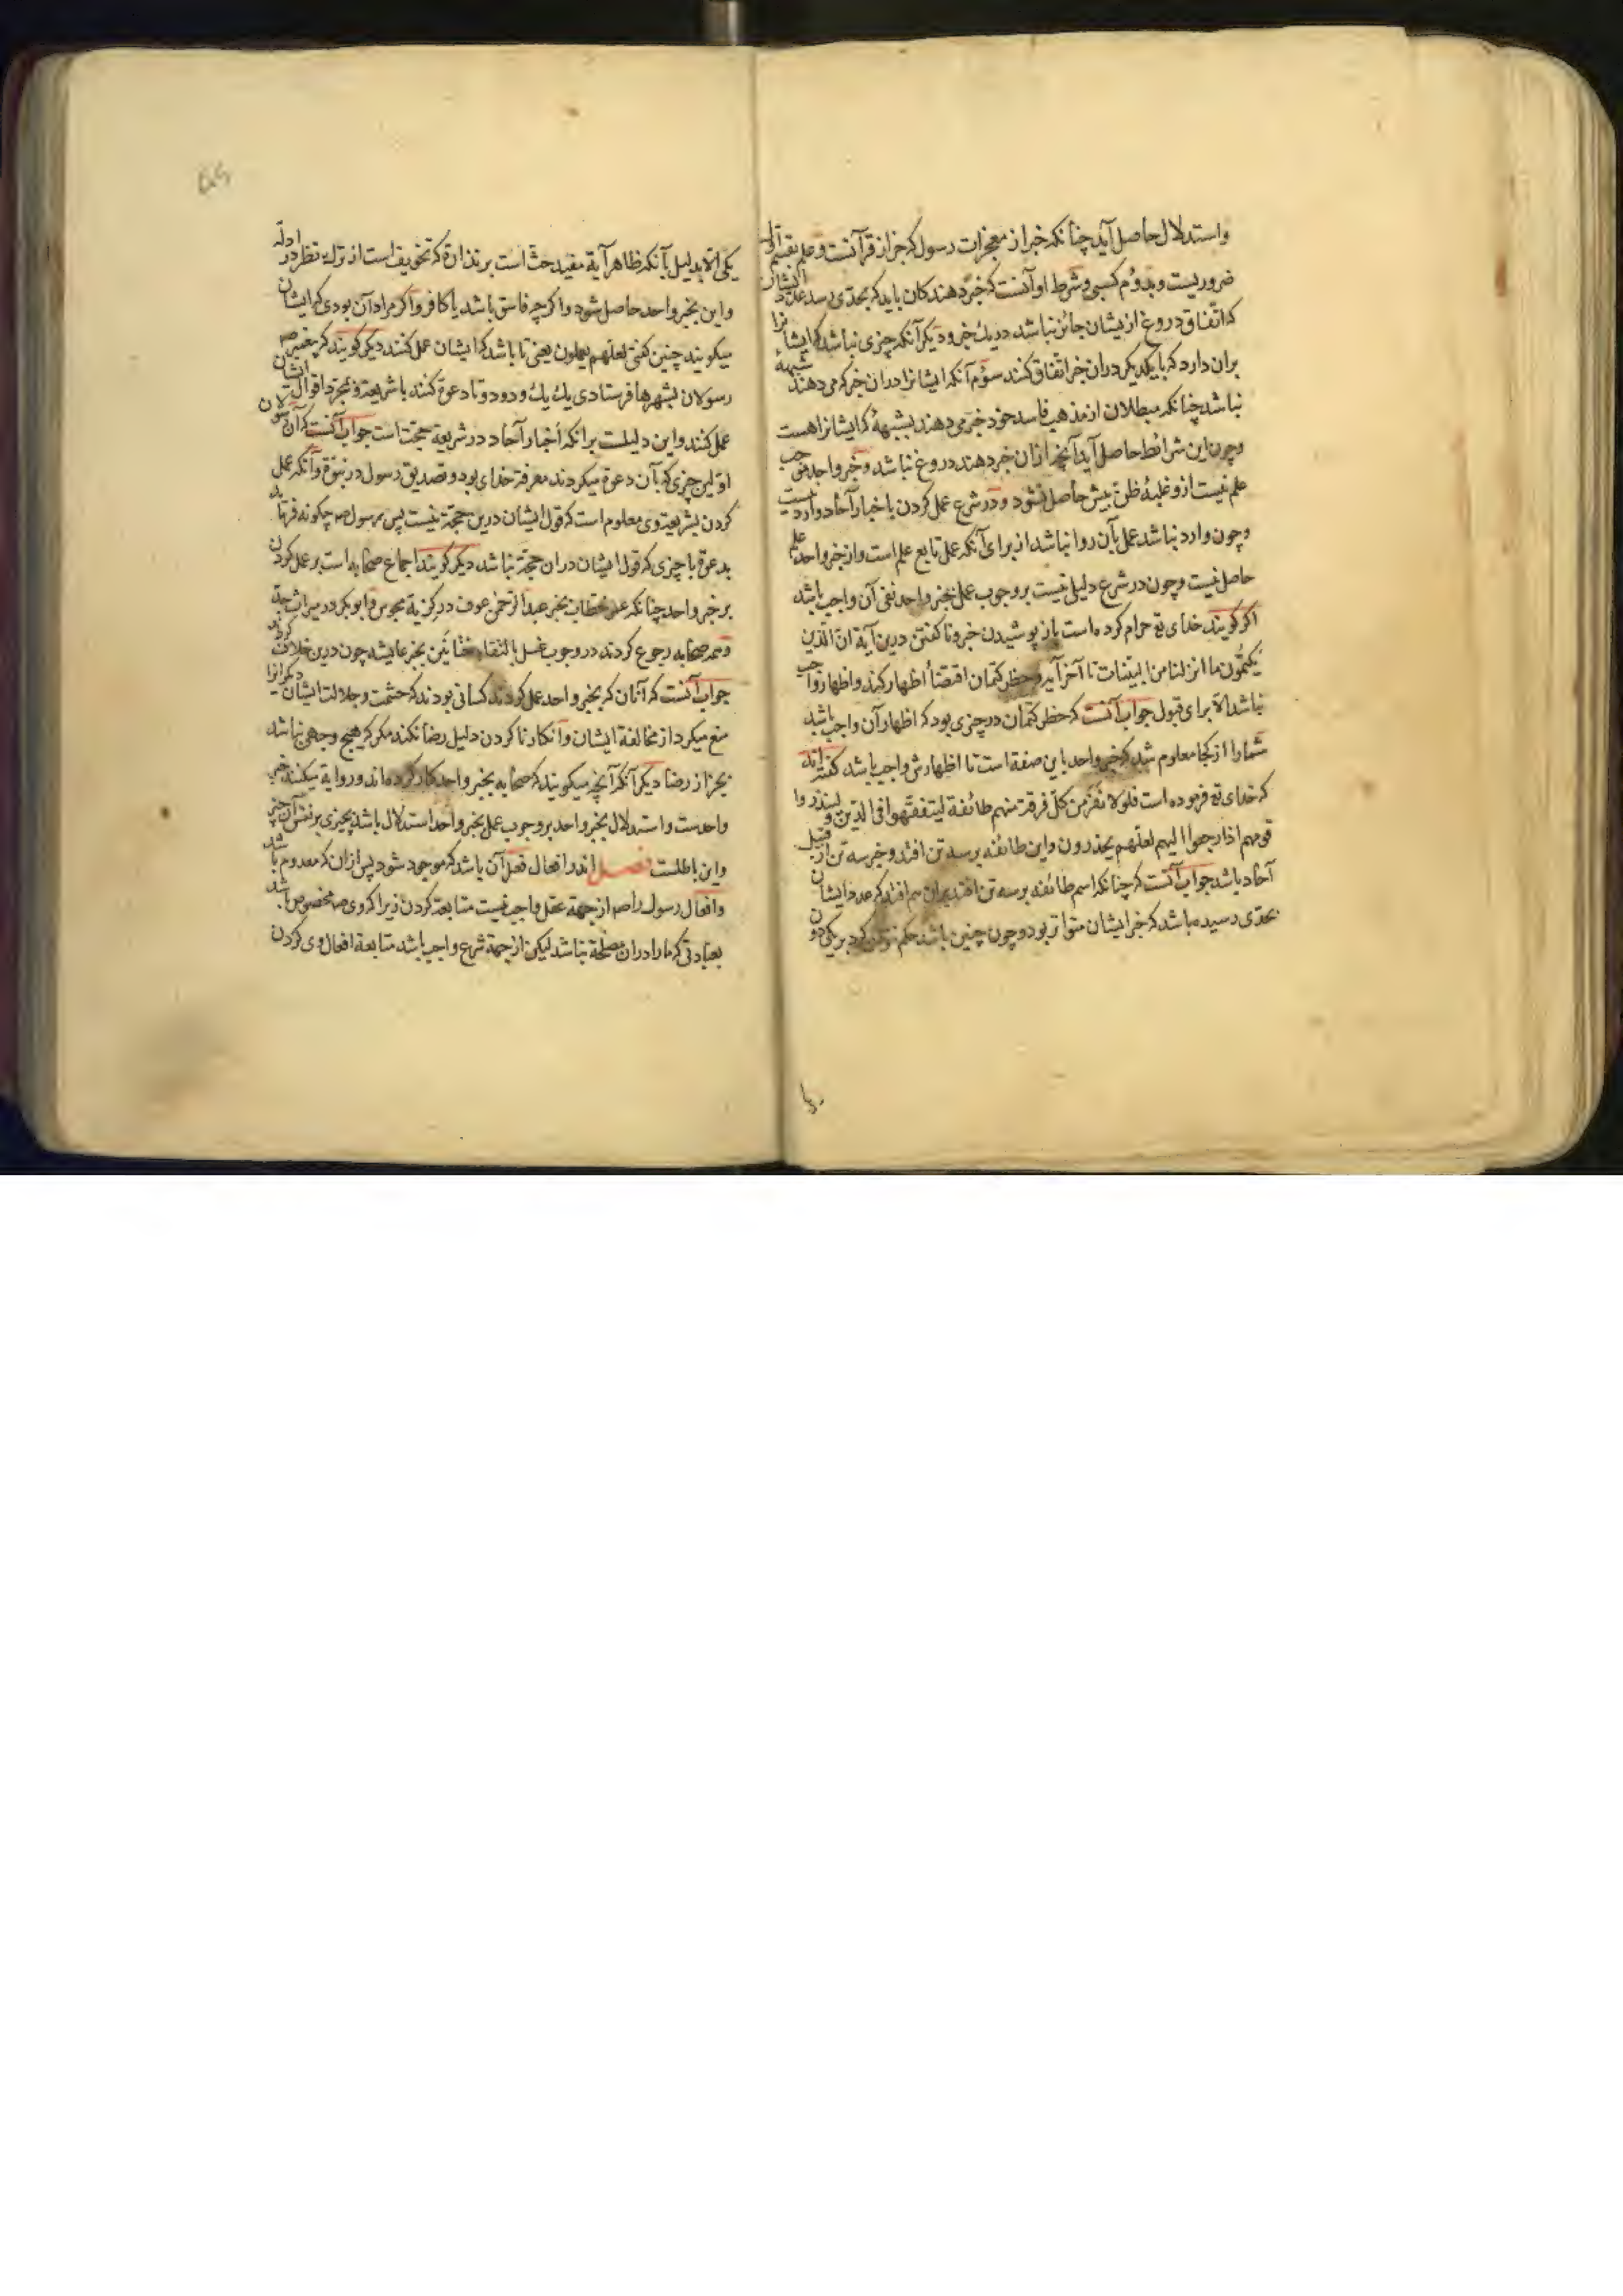 واستدلال حاصل آید چنانکه خبر از معجزات رسول که جز از قرآنست وعلم بقسم اول
ضروریست وبدوم کسبی وشرط او آنست که خبر دهندکان باید که بحدی رسد عدد ایشان
که اتفاق دروغ ازیشان جائز نباشد در یك خبر ودیکر آنکه چیزی نباشد که ایشانرا
بران دارد که با یکدیکر دران خبر اتفاق کنند سوم آنکه ایشانرا دران خبر که می دهند شبههٔ
نباشد چنانکه مبطلان از مذهب فاسد خود خبر می دهند بشبههٔ که ایشانرا هست
وچون این شرائط حاصل آید آنچه ازان خبر دهند دروغ نباشد وخبر واحد موجب
علم نیست ازو غلبهٔ ظن بیش حاصل نشود ودر شرع عمل کردن باخبار آحاد وارد نیست
وچون وارد نباشد عمل بآن روا نباشد از برای آنکه عمل تابع علم است واز خبر واحد علم
حاصل نیست وچون در شرع دلیلی نیست بر وجوب عمل بخبر واحد نفی آن واجب باشد
اکر کویند خدای تع حرام کرده است باز پوشیدن خبر وناکفتن درین آیة ان الذین
یکتمون ما انزلنا من البینات تا آخر آیه وحظر کتمان اقتضأ اظهار کند واظهار واجب
نباشد الا برای قبول جواب آنست که حظر کتمان در چیزی بود که اظهار آن واجب باشد
شمارا از کجا معلوم شد که خبر واحد باین صفة است تا اظهارش واجب باشد کفته اند
که خدای تع فرموده است فلولا نفر من کل فرقة منهم طائفة لیتفقهوا فی الدین ولینذروا
قومهم اذا رجعوا الیهم لعلهم یحذرون واین طائفه بر سه تن افتد وخبر سه تن از قبیل
آحاد باشد جواب آنست که چنانکه اسم طائفه بر سه تن افتد بران هم افتد که عدد ایشان
بحدی رسیده باشد که خبر ایشان متواتر بود وچون چنین باشد حکم نتوان کرد بر یکی دون
یکی الا بدلیل بآنکه ظاهر آیة مفید حث است بر نذارة که تخویف است از ترك نظر در ادله
واین بخبر واحد حاصل شود واکر چه فاسق باشد یا کافر واکر مراد آن بودی که ایشان
میکویند چنین کفتی لعلهم یعملون یعنی تا باشد که ایشان عمل کنند دیکر کویند که پیغمبر صه
رسولان بشهرها فرستادی یك یك ودو دو تا دعوة کنند باشریعة وبمجرد اقوال ایشان
عمل کنند واین دلیلست برانکه اخبار آحاد در شریعة حجت است جواب آنست که آن رسولان
اولین چیزی که بآن دعوة میکردند معرفة خدای بود وتصدیق رسول در نبوة وآنکه عمل
کردن بشریعة وی معلوم است که قول ایشان درین حجة نیست پس رسول صه چکونه فرستاد
بدعوة با چیزی که قول ایشان دران حجة نباشد دیکر کویند اجماع صحابه است بر عمل کردن
بر خبر واحد چنانکه عمر خطاب بخبر عبد الرحمن عوف در کزیة مجوس وابوبکر در میراث جدة
وهمه صحابه رجوع کردند در وجوب غسل بالتقاء ختانین بخبر عایشه چون درین خلاف کردند
جواب آنست که آنان که بخبر واحد عمل کردند کسانی بودند که حشمت وجلالت ایشان دیکرانرا
منع میکرد از مخالفة ایشان وانکار ناکردن دلیل رضا نکند مکر که هیچ وجهی نباشد
بجز از رضا دیکر آنکه آنچه میکویند که صحابه بخبر واحد کار کرده اند وروایة میکنند خبر
واحدست واستدلال بخبر واحد بر وجوب عمل بخبر واحد استدلال باشد بچیزی بر نفس آن چیز
واین باطلست فصل اندر افعال فعل آن باشد که موجود شود پس ازان که معدوم باشد
وافعال رسول را صه از جهة عقل واجب نیست متابعة کردن زیرا که وی صه مخصوص باشد
بعبادتی که مارا دران مصلحة نباشد لیکن از جهة شرع واجب باشد متابعة افعال وی کردن